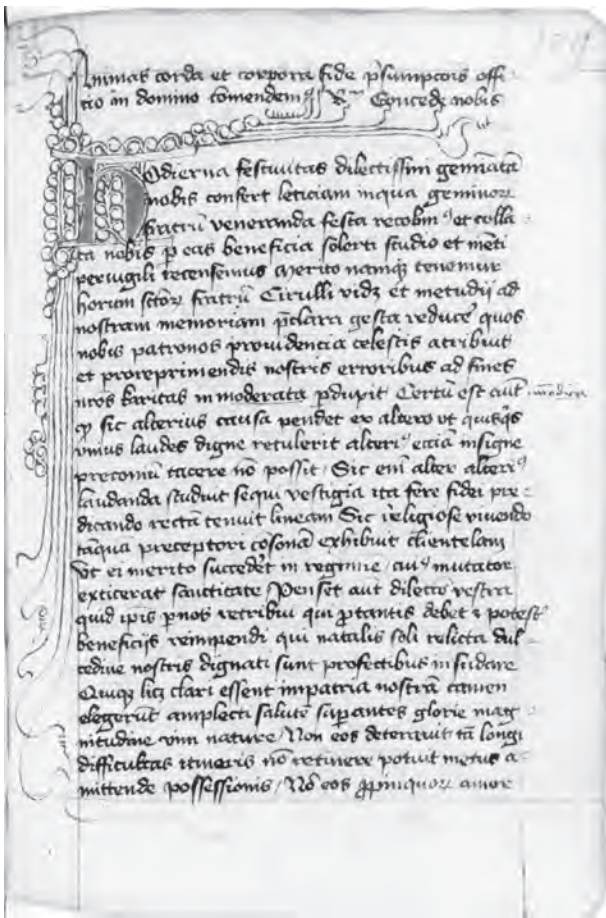 Animas corda et corpora fide p̄sumptoris offi
cio in domino comendem⁹ R̄ Concedȝ nobis
Hodierna festiuitas dilectissimi geminatā
nobis confert leticiam in qua geminoꝝ
fratrū veneranda festa recolim⁹ et colla
ta nobis p eas beneficia solerti studio et mēti
peruigili recensemus Merito namqȝ tenemur
horum sctoꝝ fratrū Cirulli vidȝ et metudij ad
nostram memoriam p̄clara gesta reduce' quos
nobis patronos prouidencia celestis atribuit
et pro reprimendis nostris erroribus ad fines
nros karitas in moderata pdupit Certū est aut̄
ꝙ sic alterius causa pendet ex altero vt quisq̄s
vnius laudes digne retulerit alteri⁹ eciā insigne
preconiū tacere nō possit Sic em̄ alter alteri⁹
laudanda studuit sequi vestigia ita fere fidei pre
dicando rectā tenuit lineam Sic religiose viuendo
tāquā preceptori cōsonā exhibuit clientelam
vt ei merito succedet in regimine cui⁹ imitator
extiterat sanctitate Penset aut̄ dilectio vestra
quid ip̄is p nos retribui qui p tantis debet ⁊ potest
beneficijs rempendi qui natalis soli relicta dul
cedine nostris dignati sunt profectibus insudare
Quiqȝ licȝ clari essent in patria nostrā tamen
elegerūt amplecti salutē supantes glorie mag
nitudine vim nature Non eos deterruit tā longi
difficultas itineris nō retinere potuit metus a
mittende possessionis Nō eos ꝓpinquoꝝ amor